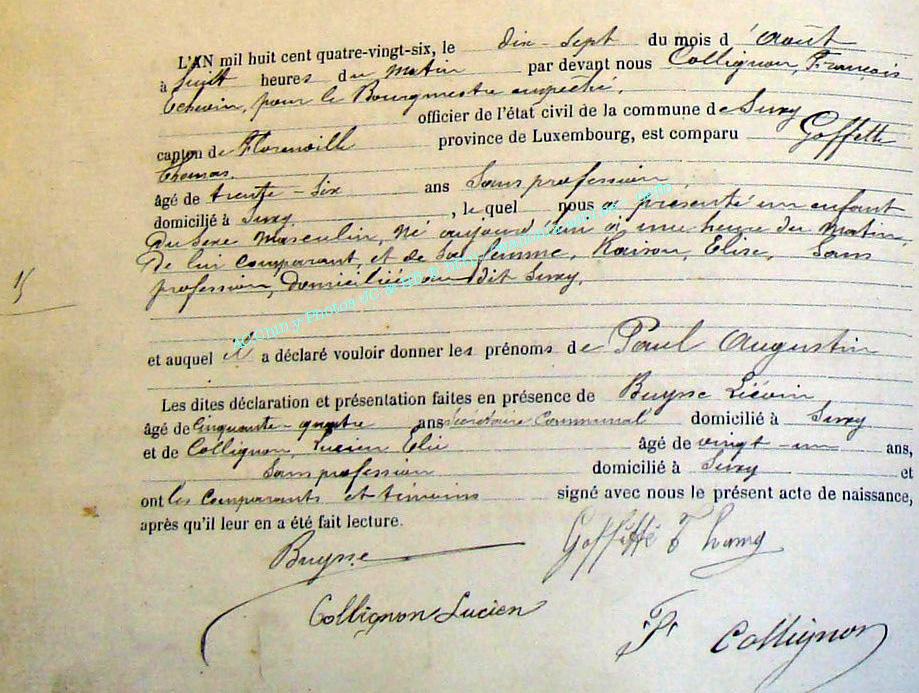 L'AN mil huit cent quatre-vingt-six, le dix-sept du mois d'Août
à huit heures du matin par devant nous Collignon, François
Echevin, pour le Bourgmestre empêché,
officier de l'état civil de la commune de Suxy
canton de Florenville province de Luxembourg, est comparu Goffette
Thomas
âgé de trente-six ans Sans profession
domicilié à Suxy, le quel nous a présenté un enfant
du sexe masculin, né aujourd'hui à une heure du matin,
de lui comparant et de sa femme, Raison, Elise, Sans
profession, domiciliée au dit Suxy.
15
et auquel il a déclaré vouloir donner les prénoms de Paul Augustin
Les dites déclaration et présentation faites en présence de Buysse Liévin
âgé de Cinquante-quatre ans secrétaire Communal domicilié à Suxy
et de Collignon, Lucien Elie âgé de vingt-un ans,
Sans profession domicilié à Suxy et
ont les comparants et témoins signé avec nous le présent acte de naissance,
après qu'il leur en a été fait lecture.
Buysse Goffette Thomas
Collignon Lucien
F. Collignon